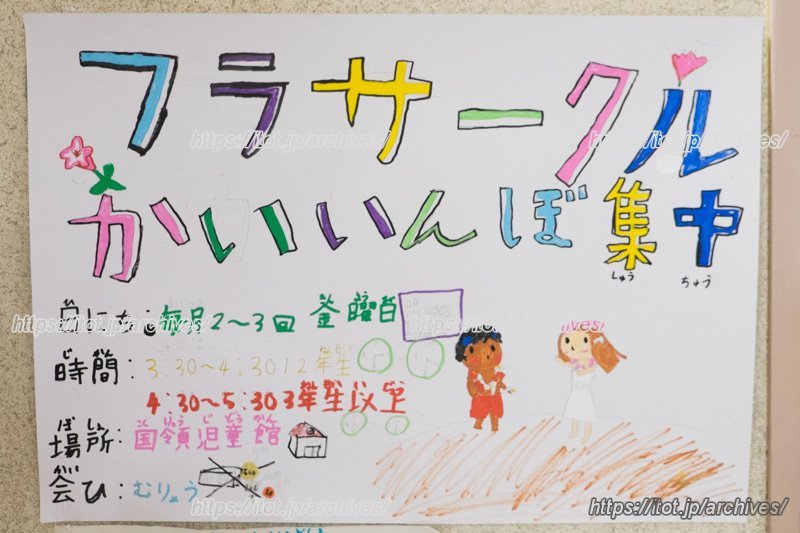 フラサークル
かいいんぼ集中
しゅう ちゅう
日にち：毎月2～3回 金曜日
時間：3:30～4:30 1.2年生
4:30～5:30 3年生以上
ば しょ りょう じ どう かん
場所：国領児童館
会ひ：むりょう
https://itot.jp/archives/